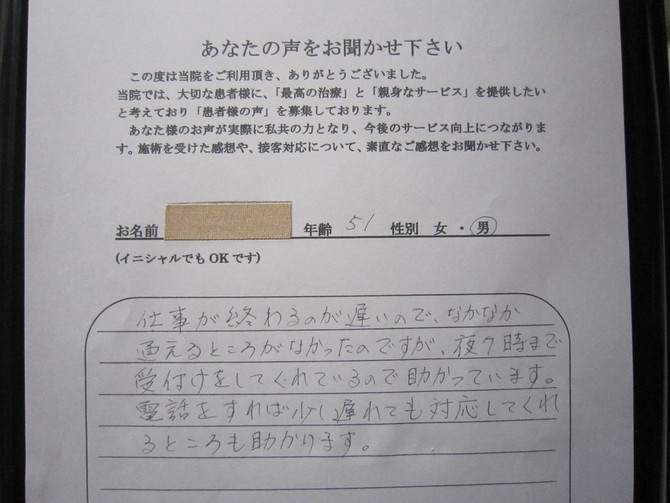 あなたの声をお聞かせ下さい
この度は当院をご利用頂き、ありがとうございました。
当院では、大切な患者様に、「最高の治療」と「親身なサービス」を提供したい
と考えており「患者様の声」を募集しております。
あなた様のお声が実際に私共の力となり、今後のサービス向上につながりま
す。施術を受けた感想や、接客対応について、素直なご感想をお聞かせ下さい。
お名前 年齢 51 性別 女・男
(イニシャルでもOKです)
仕事が終わるのが遅いので、なかなか
通えるところがなかったのですが、夜9時まで
受付けをしてくれているので助かっています。
電話をすれば少し遅れても対応してくれ
るところも助かります。